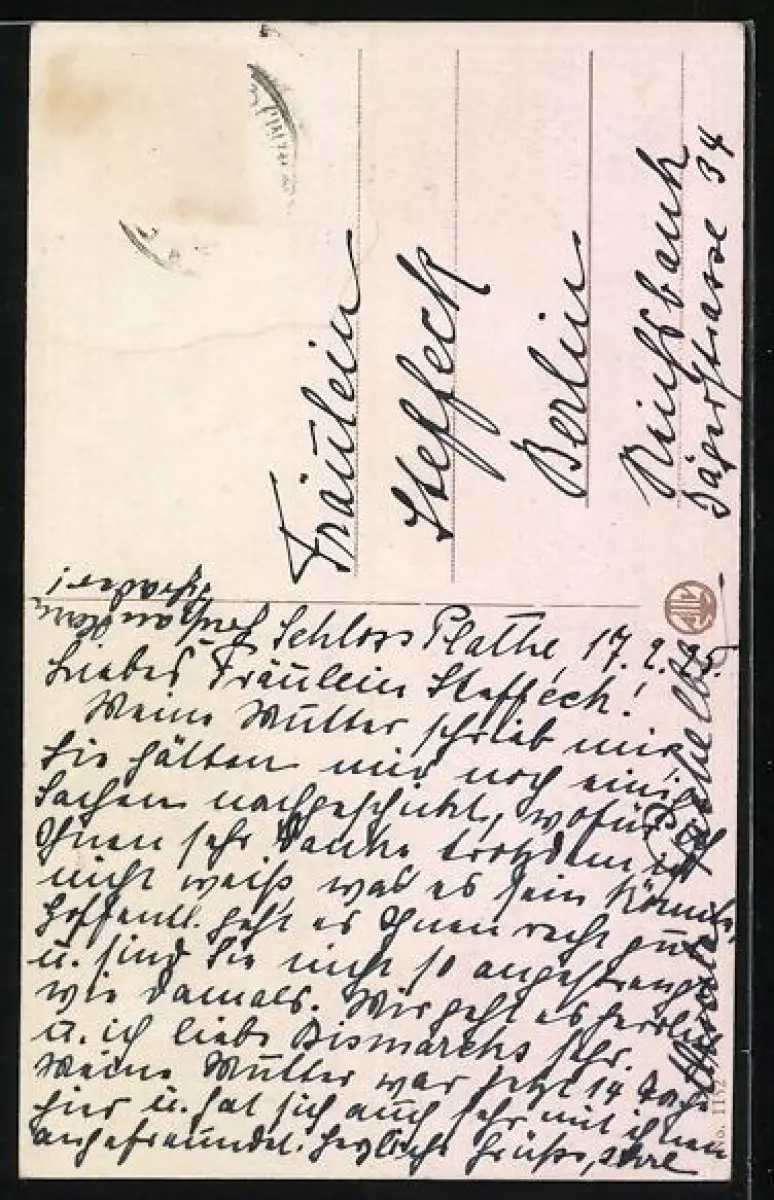 Fräulein
Steffeck
Berlin
Reichsbank
Jägerstrasse 34
Schloss Plathe, 17.2.25.
Liebes Fräulein Steffeck!
Meine Mutter schrieb mir
Sie hätten mir noch einige
Sachen nachgeschickt, wofür ich
Ihnen sehr danke trotzdem ich
nicht weiß was es sein könnte.
Hoffentl. geht es Ihnen recht gut
u. sind Sie nicht so angestrengt
wie damals. Mir geht es herrlich
u. ich liebe Bismarcks sehr.
Meine Mutter war jetzt 14 Tage
hier u. hat sich auch sehr mit ihnen
angefreundet. Herzliche Grüße, Ihre